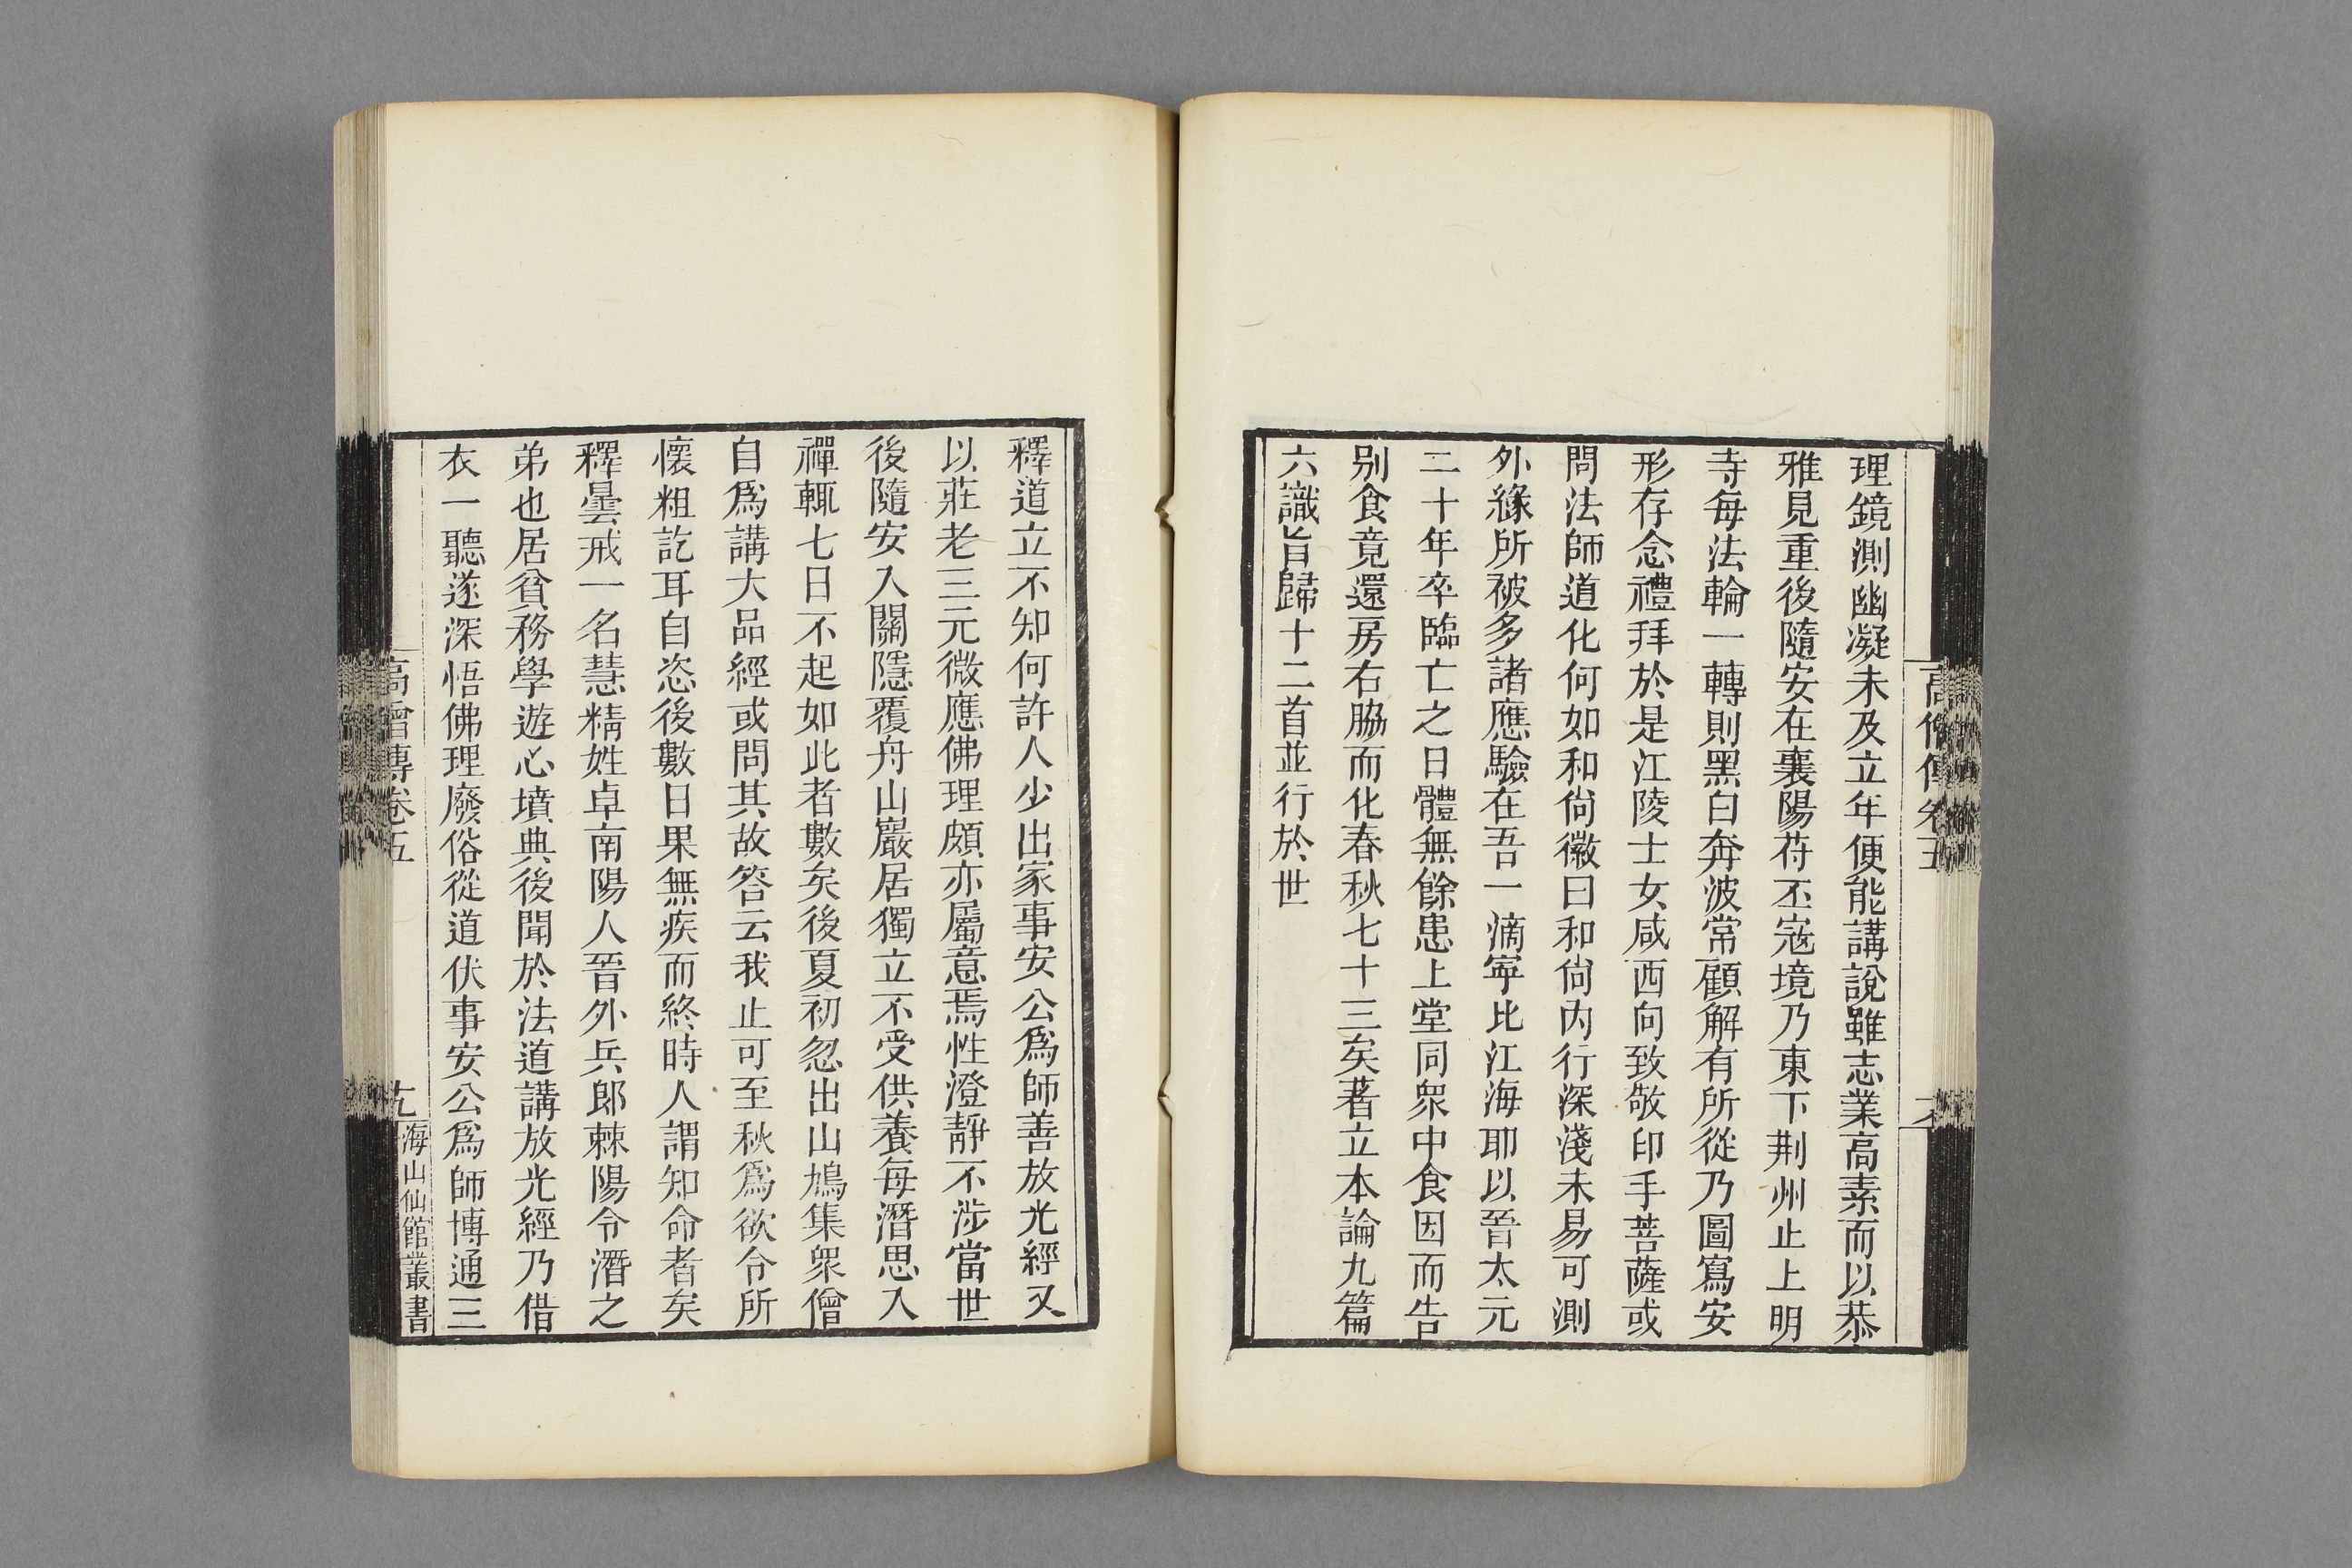 高僧傳卷五
理鏡測幽凝未及立年便能講說雖志業高素而以恭
雅見重後隨安在襄陽苻丕寇境乃東下荆州止上明
寺每法輪一轉則黑白奔波常顧解有所從乃圖寫安
形存念禮拜於是江陵士女咸西向致敬印手菩薩或
問法師道化何如和尙徽曰和尙內行深淺未易可測
外緣所被多諸應驗在吾一滴寧比江海耶以晉太元
二十年卒臨亡之日體無餘患上堂同衆中食因而告
別食竟還房右脇而化春秋七十三矣著立本論九篇
六識旨歸十二首並行於世
釋道立不知何許人少出家事安公爲師善放光經又
以莊老三元微應佛理頗亦屬意焉性澄靜不涉當世
後隨安入關隱覆舟山巖居獨立不受供養每潛思入
禪輒七日不起如此者數矣後夏初忽出山鳩集衆僧
自爲講大品經或問其故答云我止可至秋爲欲令所
懷粗訖耳自恣後數日果無疾而終時人謂知命者矣
釋曇戒一名慧精姓卓南陽人晉外兵郎棘陽令潛之
弟也居貧務學遊心墳典後聞於法道講放光經乃借
衣一聽遂深悟佛理廢俗從道伏事安公爲師博通三
高僧傳卷五
海山仙館叢書